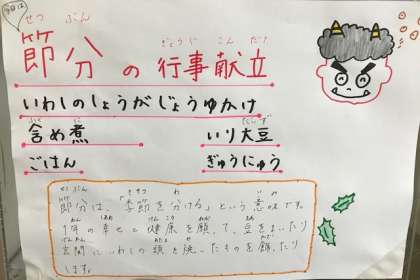 今日は
節分の行事献立
いわしのしょうがじょうゆかけ
含め煮 いり大豆
ごはん ぎゅうにゅう
節分は、「季節を分ける」という意味です。
1年の幸せと健康を願って、豆をまいたり
玄関にいわしの頭を焼いたものを飾ったり
します。